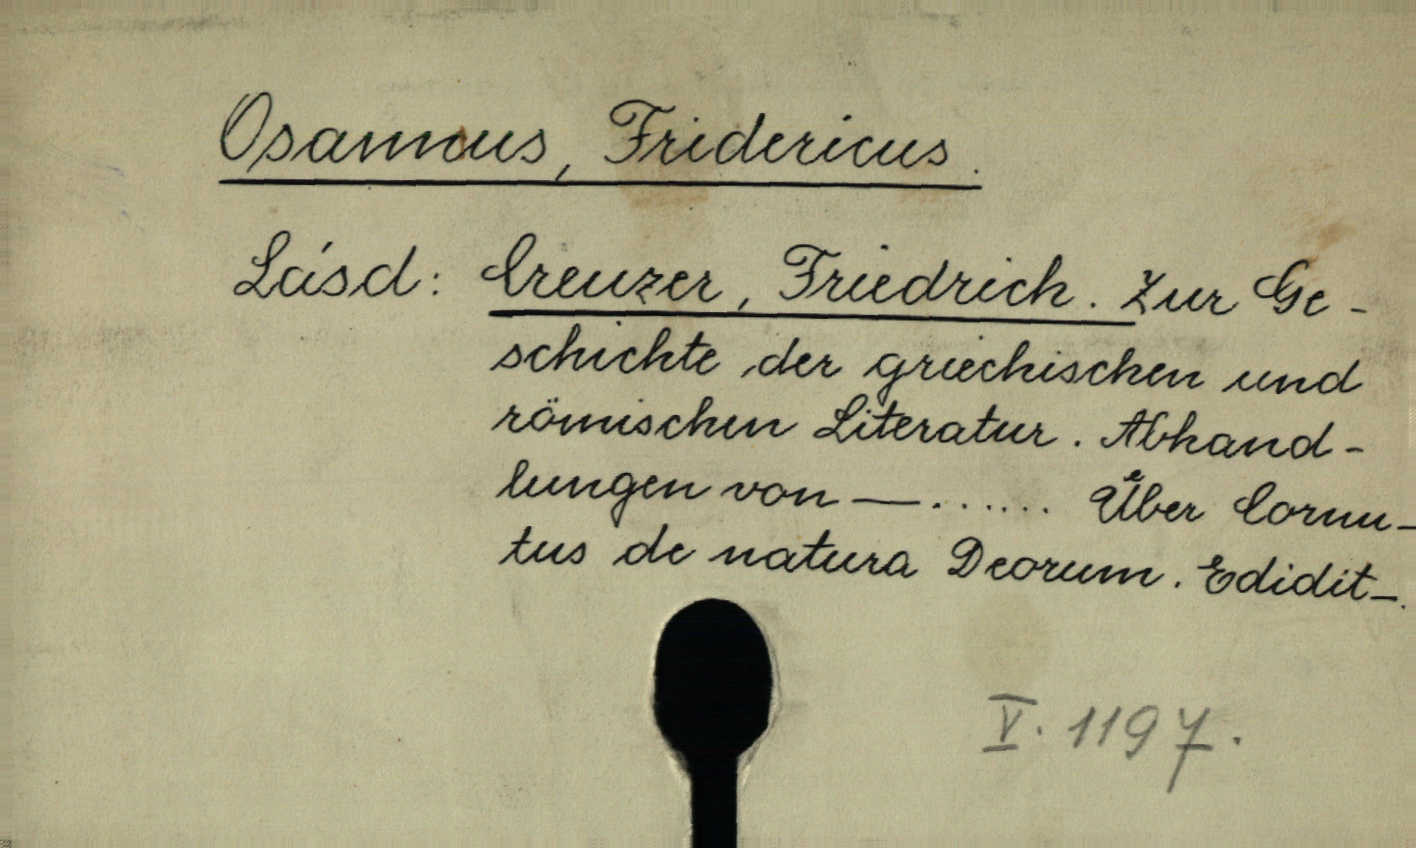 Osannus, Fridericus.
Lásd: Creuzer, Friedrich. Zur Ge-
schichte der griechischen und
römischen Literatur. Abhand-
lungen von — ...... Über Cornu-
tus de natura Deorum. Edidit —.
V. 1197.